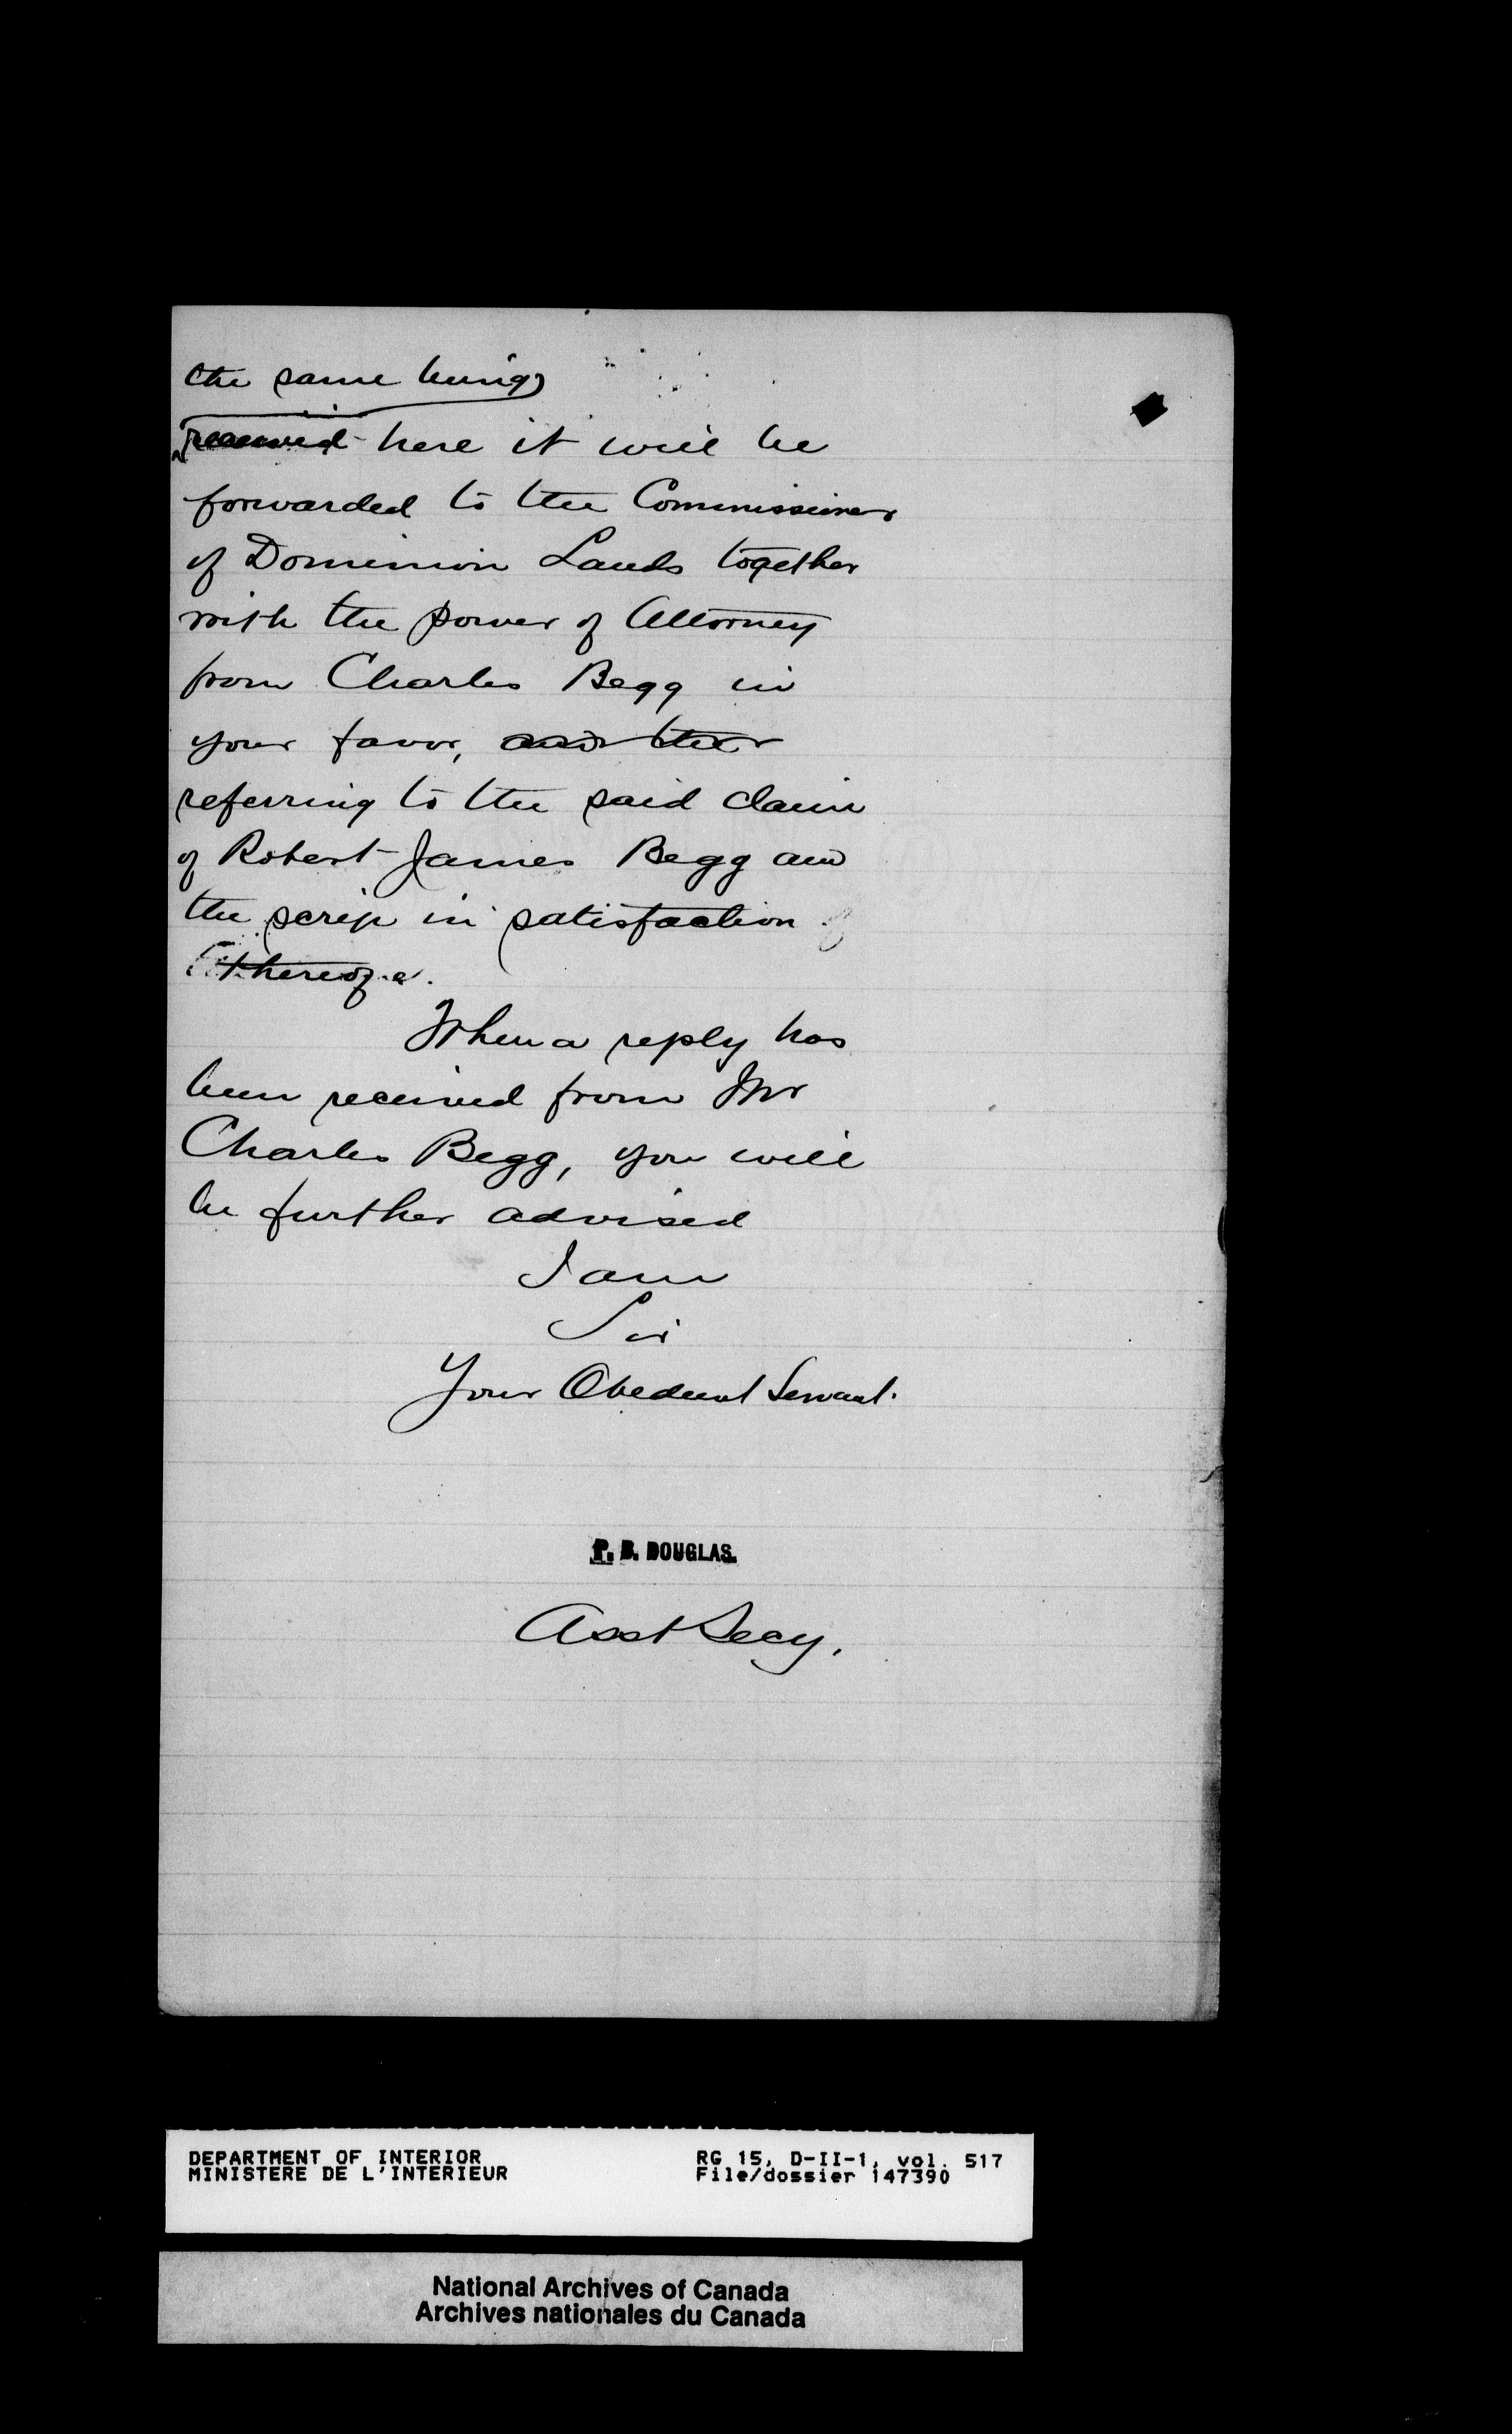 the same being
received here it will be
forwarded to the Commissioner
of Dominion Lands together
with the power of Attorney
from Charles Begg in
your favor, and the
referring to the said claim
of Robert James Begg and
the scrip in satisfaction
thereof.
When a reply has
been received from Mr
Charles Begg, you will
be further advised
I am
Sir
Your Obedient Servant.
P. B. DOUGLAS.
Asst Secy.
DEPARTMENT OF INTERIOR RG 15, D-II-1, vol. 517
MINISTERE DE L'INTERIEUR File/dossier 147390
National Archives of Canada
Archives nationales du Canada